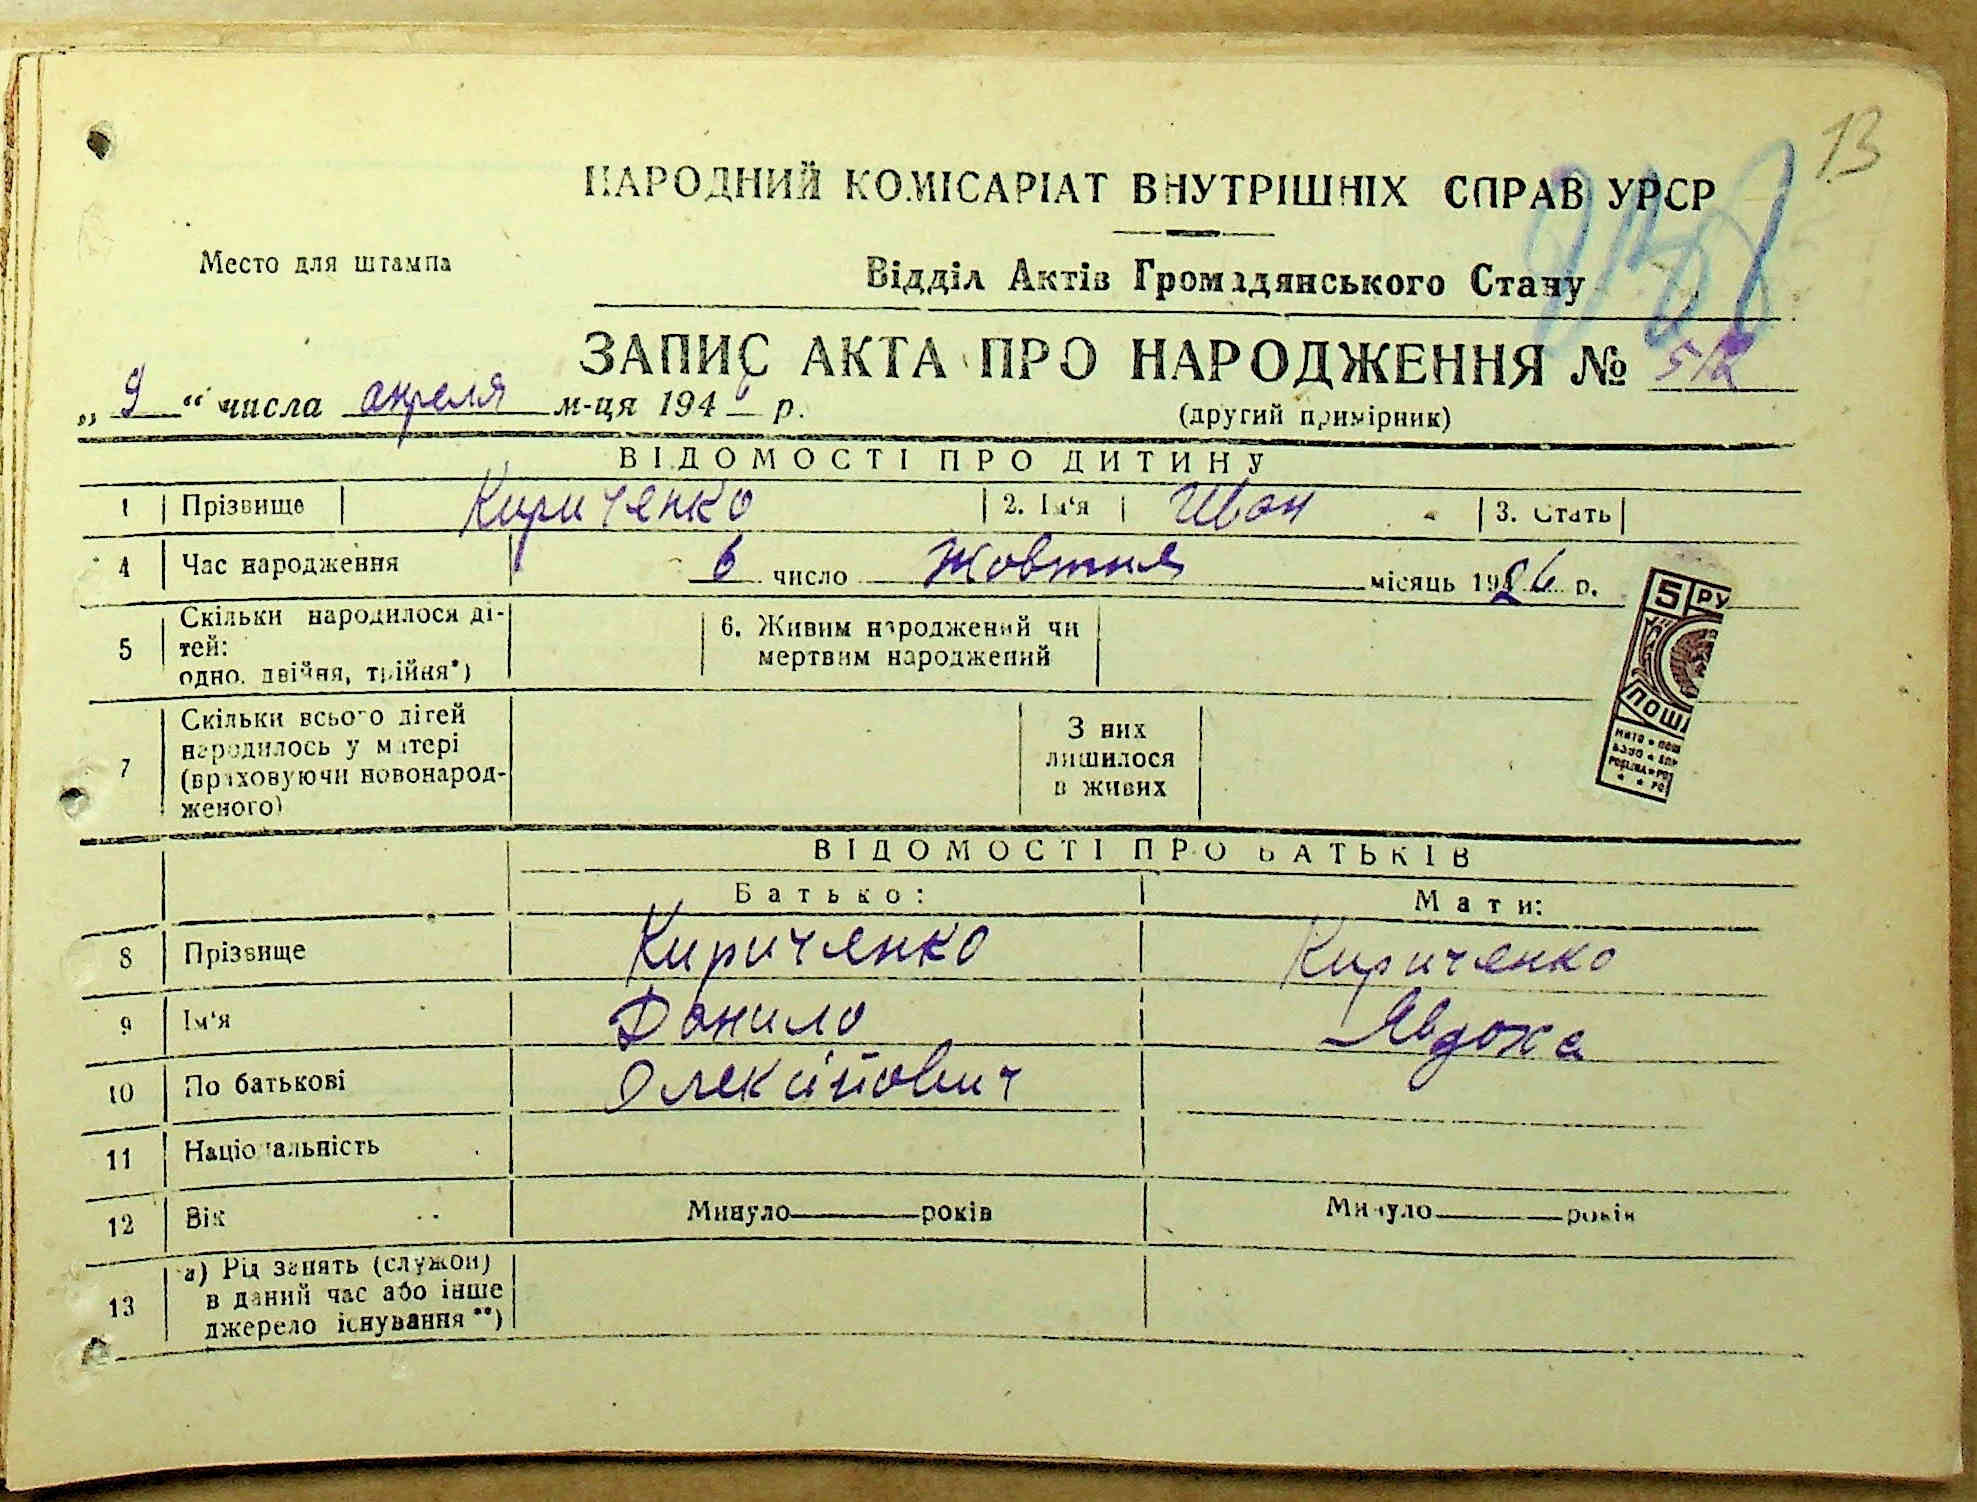 13
НАРОДНИЙ КОМІСАРІАТ ВНУТРІШНІХ СПРАВ УРСР
Место для штампа
Відділ Актів Громадянського Стану
ЗАПИС АКТА ПРО НАРОДЖЕННЯ № 512
„ 9 “ числа апреля м-ця 194 р.
(другий примірник)
ВІДОМОСТІ ПРО ДИТИНУ
1 Прізвище Кириченко 2. Ім‘я Иван 3. Стать
4 Час народження 6 число Жовтня місяць 1926 р.
5 Скільки народилося ді-
тей:
одно, двійня, трійня*)
6. Живим народжений чи
мертвим народжений
5 РУ
ПОШ
7 Скільки всього дітей
народилось у матері
(враховуючи новонарод-
женого)
З них
лишилося
в живих
ВІДОМОСТІ ПРО БАТЬКІВ
Батько: Мати:
8 Прізвище Кириченко Кириченко
9 Ім‘я Данило Явдоха
10 По батькові Олексійович
11 Національність
12 Вік Минуло років Минуло років
13 а) Рід занять (служби)
в даний час або інше
джерело існування **)